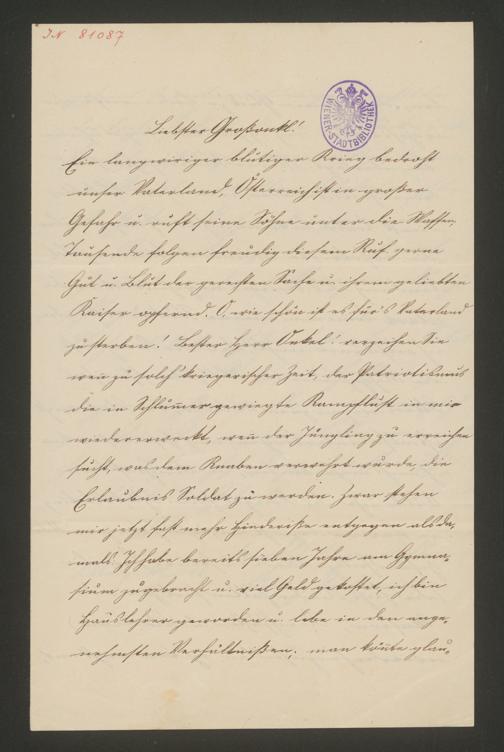 JN 81087
WIENER-STADTBIBLIOTHEK
Liebster Großonkl!
Ein langwiriger blutiger Krieg bedroht
unser Vaterland, Österreich ist in großer
Gefahr u. ruft seine Söhne unter die Waffen,
Tausende folgen freudig diesem Ruf gerne
Gut u. Blut der gerechten Sache u. ihrem geliebten
Kaiser opfernd. O, wie schön ist es für's Vaterland
zu sterben! Bester Herr Onkel! verzeihen Sie
wen zu solch kriegerischer Zeit, der Patriotismus
die in Schlummer gewiegte Kampflust in mir
wiedererweckt, wen der Jüngling zu erreichen
sucht, was dem Knaben verwehrt wurde, die
Erlaubnis Soldat zu werden. Zwar stehen
mir jetzt fast mehr Hinderniße entgegen als da-
mals. Ich habe bereits sieben Jahre am Gymna-
sium zugebracht u. viel Geld gekostet, ich bin
Hauslehrer geworden u. lebe in den ange-
nehmsten Verhältnißen; man könte glau-